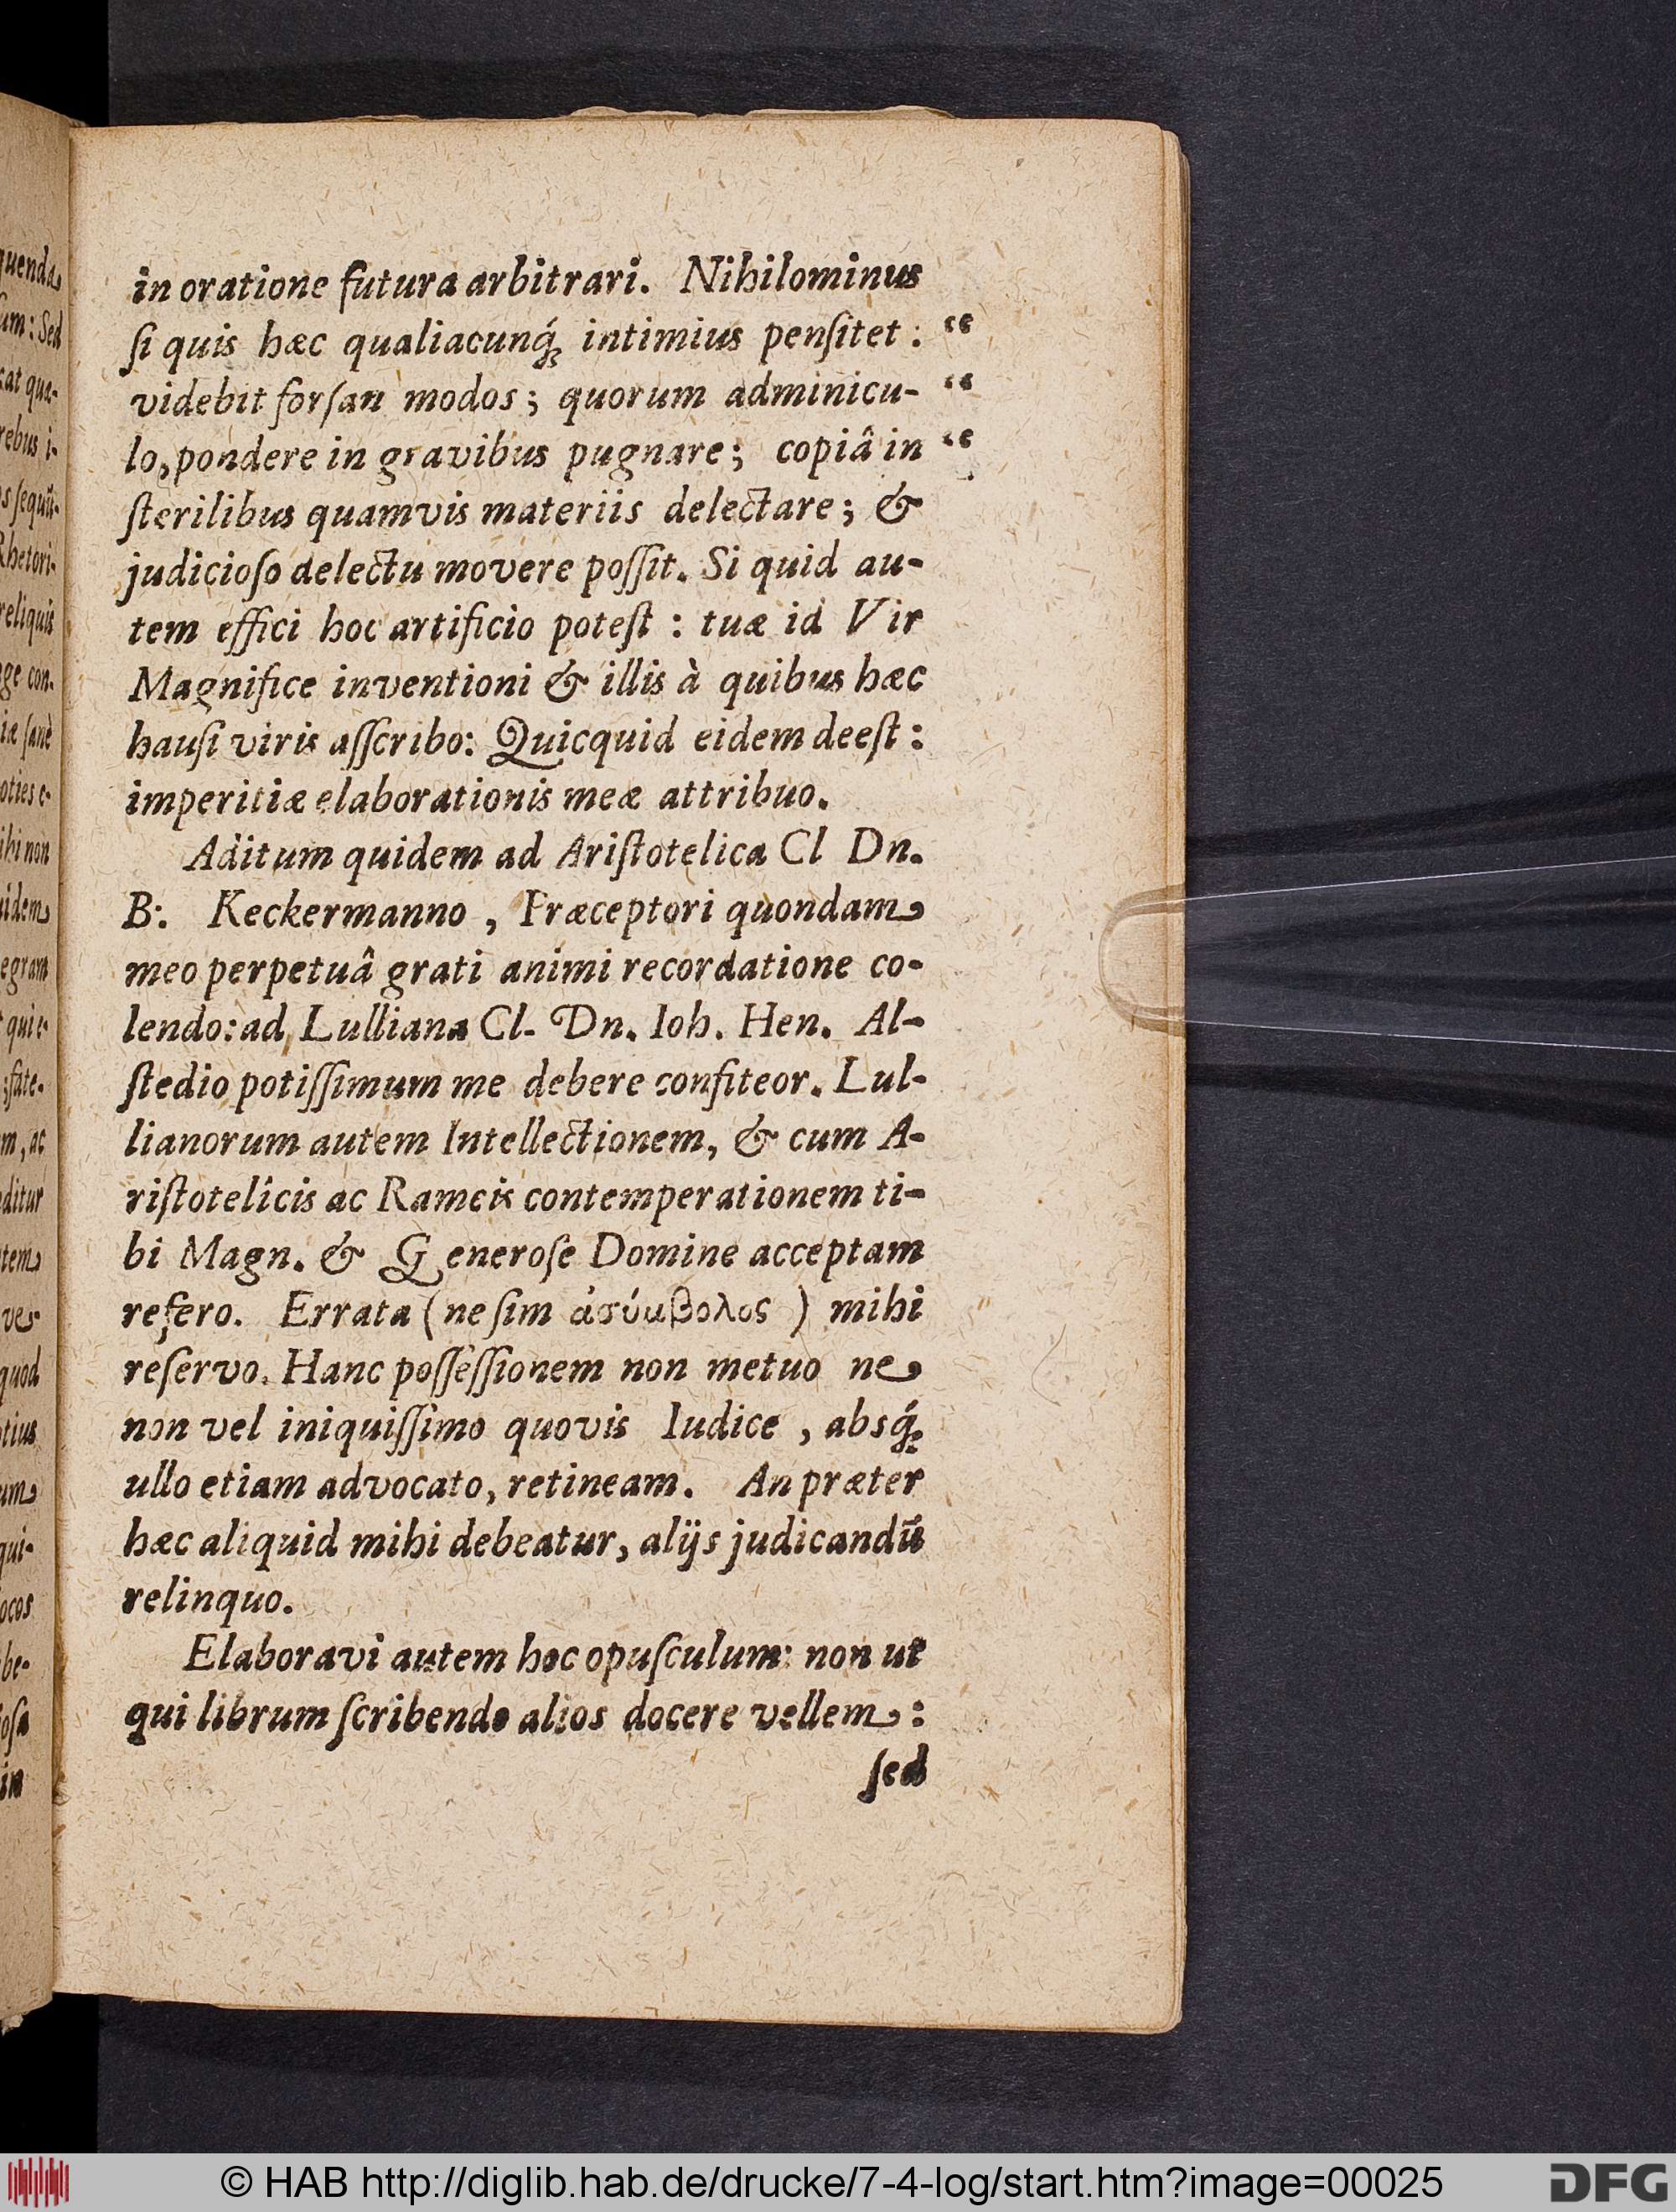 in oratione futura arbitrari. Nihilominus
ſi quis hæc qualiacunq́; intimius penſitet: “
videbit forſan modos; quorum adminicu- “
lo, pondere in gravibus pugnare; copiâ in “
ſterilibus quamvis materiis delectare; &
judicioſo delectu movere poſſit. Si quid au-
tem effici hoc artificio poteſt: tuæ id Vir
Magnifice inventioni & illis à quibus hæc
hauſi viris aſſcribo: Quicquid eidem deeſt:
imperitiæ elaborationis meæ attribuo.
Aditum quidem ad Ariſtotelica Cl Dn.
B: Keckermanno, Præceptori quondam
meo perpetuâ grati animi recordatione co-
lendo: ad Lulliana Cl. Dn. Ioh. Hen. Al-
ſtedio potiſſimum me debere confiteor. Lul-
lianorum autem Intellectionem, & cum A-
riſtotelicis ac Rameis contemperationem ti-
bi Magn. & Generoſe Domine acceptam
refero. Errata (ne ſim ἀσύμβολος) mihi
reſervo. Hanc poſſeſſionem non metuo ne
non vel iniquiſſimo quovis Iudice, absq́;
ullo etiam advocato, retineam. An præter
hæc aliquid mihi debeatur, alijs judicandũ
relinquo.
Elaboravi autem hoc opuſculum: non ut
qui librum ſcribendo alios docere vellem:
ſed
© HAB http://diglib.hab.de/drucke/7-4-log/start.htm?image=00025
DFG